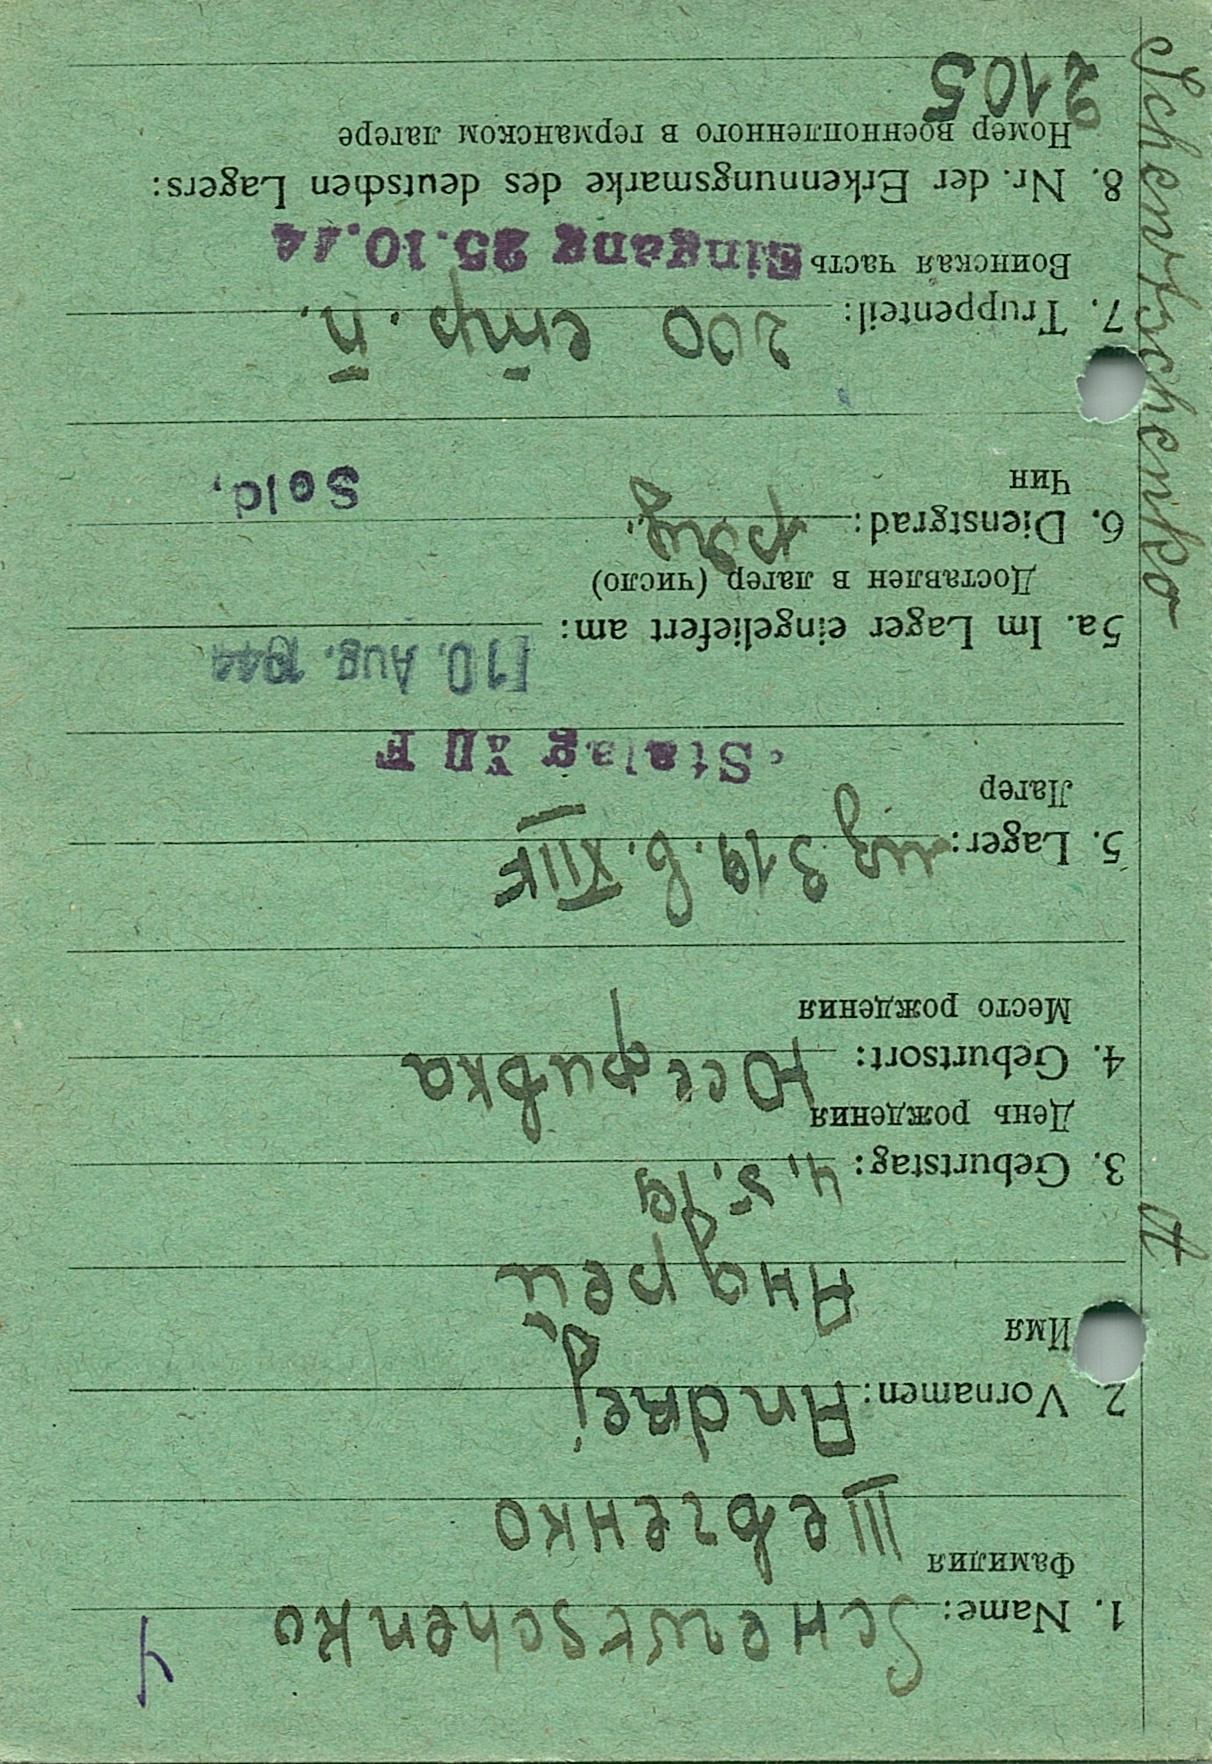 4
1. Name: Schewtschenko
Фамилия
Шевченко
2. Vornamen: Andrej
Имя
Андрей
3. Geburtstag: 4.5.19
День рождения
4. Geburtsort: Юсефивка
Место рождения
5. Lager: из 319. в. XIIF
Лагер
Stalag XII F
5a. Im Lager eingeliefert am: 10. Aug. 1944
Доставлен в лагер (число)
6. Dienstgrad: ряд. Sold.
Чин
7. Truppenteil: 200 стр. п.
Воинская часть Eingang 25.10.44
8. Nr. der Erkennungsmarke des deutschen Lagers:
Номер военнопленного в германском лагере
2105
Schewtschenko A